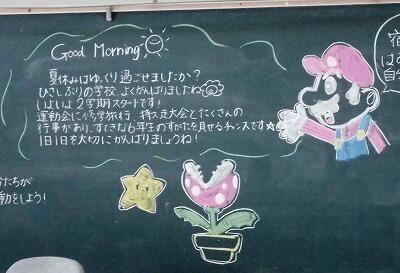 Good Morning
夏休みはゆっくり過ごせましたか？
ひさしぶりの学校、よくがんばりましたね
いよいよ2学期スタートです！
運動会に修学旅行、持久走大会とたくさんの
行事があり、すてきな6年生のすがたを見せるチャンスです☆
1日1日を大切にがんばりましょうね！
たちが
動をしよう！
宿
は
自